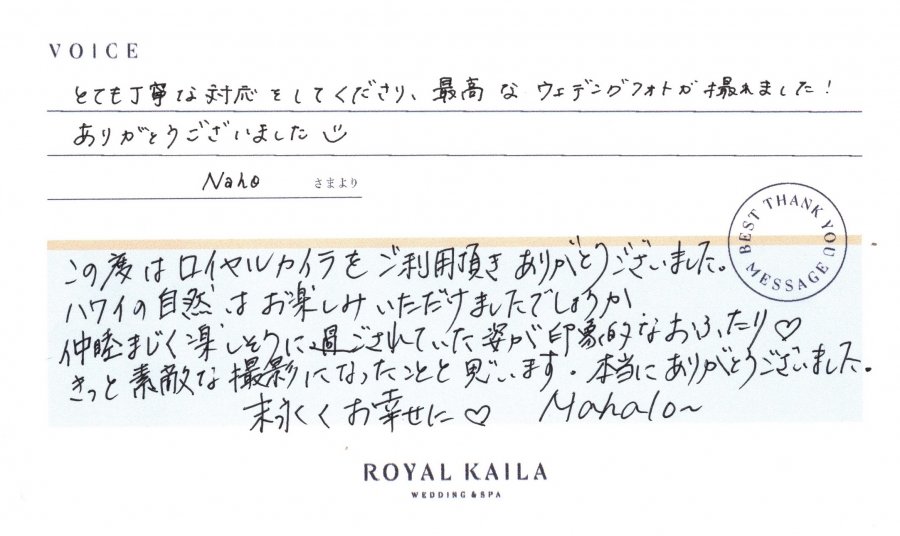 VOICE
とても丁寧な対応をしてくださり、最高なウェディングフォトが撮れました！
ありがとうございました
Naho さまより
BEST THANK YOU MESSAGE
この度はロイヤルカイラをご利用頂きありがとうございました。
ハワイの自然はお楽しみいただけましたでしょうか
仲睦まじく楽しそうに過ごされていた姿が印象的なおふたり♡
きっと素敵な撮影になったことと思います。本当にありがとうございました。
末永くお幸せに♡ Mahalo~
ROYAL KAILA
WEDDING & SPA